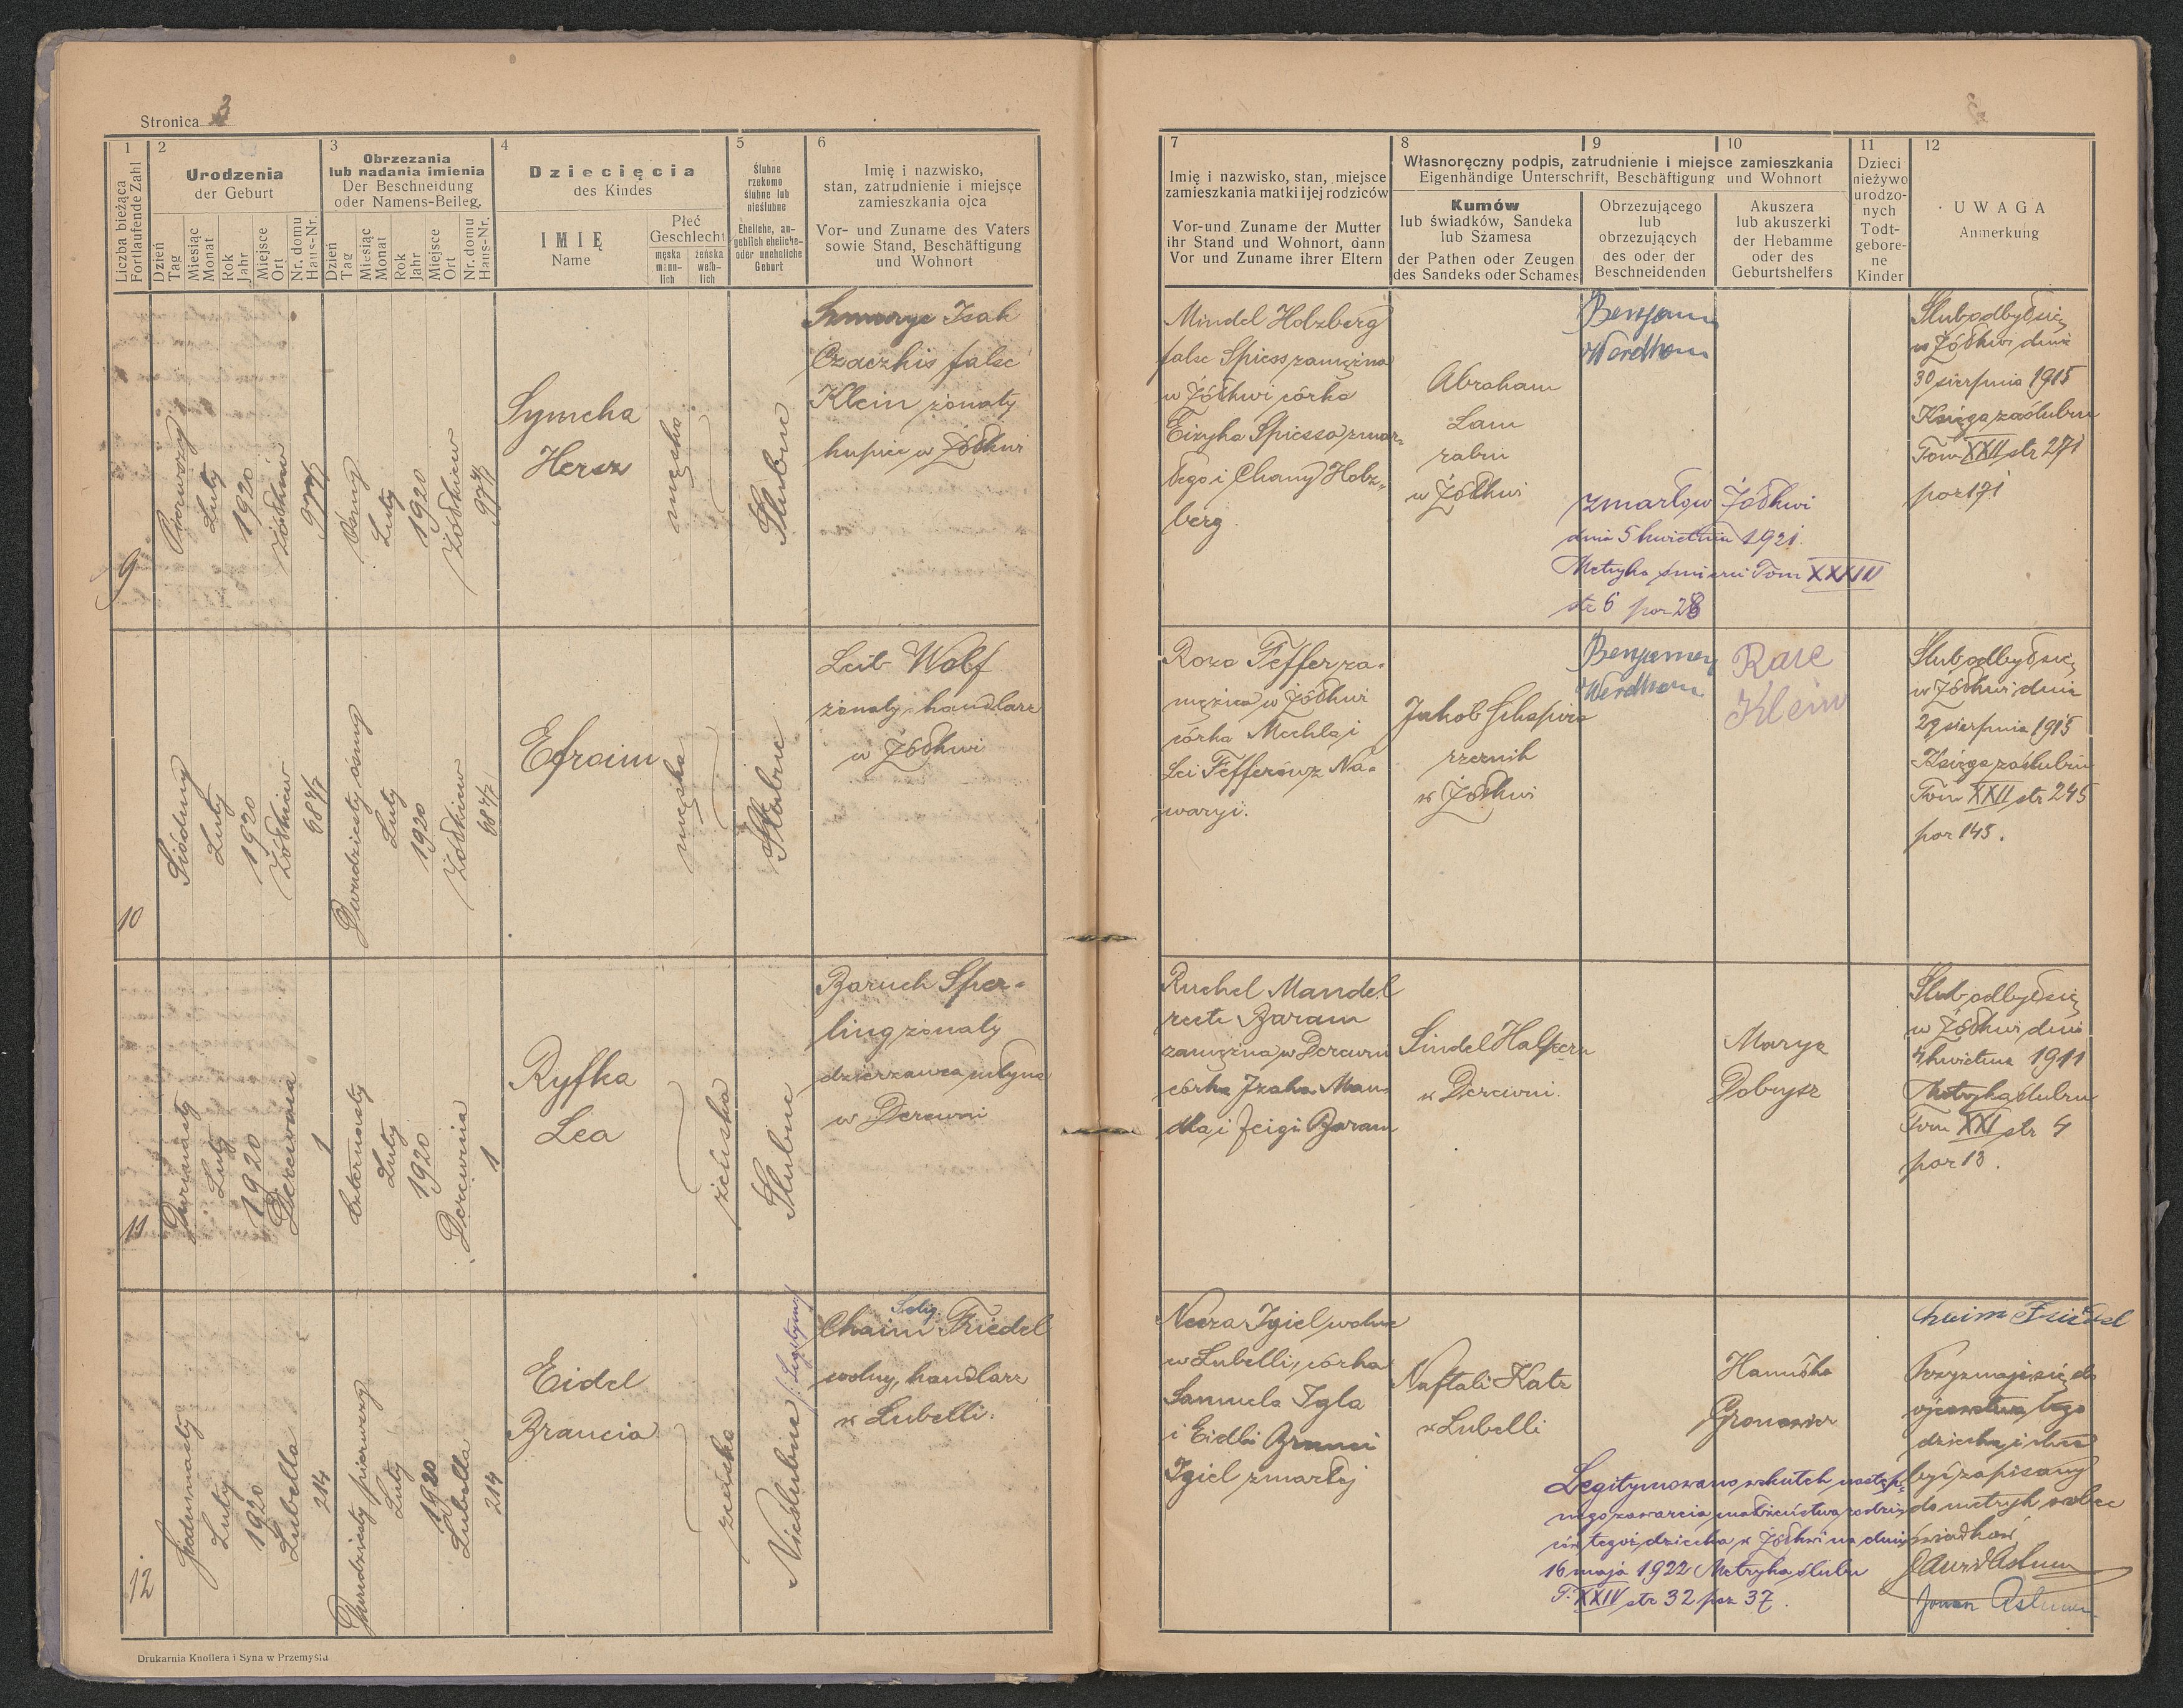 Stronica 3
1
Liczba bieżąca
Fortlaufende Zahl
2
Urodzenia
der Geburt
Dzień
Tag
Miesiąc
Monat
Rok
Jahr
Miejsce
Ort
Nr. domu
Haus-Nr.
3
Obrzezania
lub nadania imienia
Der Beschneidung
oder Namens-Beileg.
Dzień
Tag
Miesiąc
Monat
Rok
Jahr
Miejsce
Ort
Nr. domu
Haus-Nr.
4
Dziecięcia
des Kindes
IMIĘ
Name
Płeć
Geschlecht
męska
männ-
lich
żeńska
weib-
lich
5
Ślubne
rzekomo
ślubne lub
nieślubne
Eheliche, an-
geblich eheliche-
oder uneheliche
Geburt
6
Imię i nazwisko,
stan, zatrudnienie i miejsce
zamieszkania ojca
Vor- und Zuname des Vaters
sowie Stand, Beschäftigung
und Wohnort
7
Imię i nazwisko, stan, miejsce
zamieszkania matki i jej rodziców
Vor-und Zuname der Mutter
ihr Stand und Wohnort, dann
Vor und Zuname ihrer Eltern
8
9
10
Własnoręczny podpis, zatrudnienie i miejsce zamieszkania
Eigenhändige Unterschrift, Beschäftigung und Wohnort
Kumów
lub świadków, Sandeka
lub Szamesa
der Pathen oder Zeugen
des Sandeks oder Schames
Obrzezującego
lub
obrzezujących
des oder der
Beschneidenden
Akuszera
lub akuszerki
der Hebamme
oder des
Geburtshelfers
11
Dzieci
nieżywo
urodzo-
nych
Todt-
gebore-
ne
Kinder
12
UWAGA
Anmerkung
9
Pierwszy
Luty
1920
Żółkiew
Ósmy
Luty
1920
Żółkiew
Symcha
Hersz
męska
Ślubne
Isak
Czaczkis false
Klein żonaty
kupiec w Żółkwi
Mindel Holzberg
false Spiess zamężna
w Żółkwi córka
Eizyka Spiessa zmar-
łego i Chany Holz-
berg.
Abraham
Lam
rabin
w Żółkwi
Benjamin
Werdham
zmarł w Żółkwi
dnia 5 kwietnia 1921.
Metryka śmierci Tom XXXIV
str 6 por 28
Ślub odbył się
w Żółkwi dnia
30 sierpnia 1915
Księga zaślubin
Tom XXII str 271
por 171
10
Siódmy
Luty
1920
Żółkiew
Dwudziesty ósmy
Luty
1920
Żółkiew
Efroim
męska
Ślubne
Leib Wolf
żonaty handlarz
w Żółkwi
Roza Fefferza-
mężna w Żółkwi
córka Mechla i
Lei Fefferów z Na-
waryi.
Jakob Schapira
rzeznik
w Żółkwi
Benjamin
Werdham
Rare
Klein
Ślub odbył się
w Żółkwi dnia
29 sierpnia 1915
Księga zaślubin
Tom XXII str 245
por 145.
11
Dwunasty
Luty
1920
Derewnia
1
Czternasty
Luty
1920
Derewnia
1
Ryfka
Lea
żeńska
Ślubne
Baruch Sper-
ling żonaty
dzierzawca młyna
w Derewni
Ruchel Mandel
recte Baram
zamężna w Derewni
córka Izaka Man-
dla i Feigi Baram
Sindel Halpern
w Derewni.
Marya
Dobrysz
Ślub odbył się
w Żółkwi dnia
4 kwietnia 1911
Metryka ślubu
Tom XXI str 4
por 13.
12
Siedemnasty
Luty
1920
Lubella
214
Dwudziesty pierwszy
Luty
1920
Lubella
214
Eidel
Brancia
żeńska
Nieślubna
Chaim Friedel
wolny, handlarz
w Lubelli.
Necza Igiel wolna
w Lubelli, córka
Samuela Igla
i Eidli Branci
Igiel zmarłej
Naftali Katz
w Lubelli
Hanuśka
Legitymowano wskutek następ-
nego zawarcia małżeństwa rodzi-
ców tegoż dziecka w Żółkwi na dniu
16 maja 1922 Metryka ślubu
T. XXIV str 32 por 37.
Chaim Friedel
Przyznaję się do
ojcowstwa tego
dziecka i chcę
być zapisany
do metryk wobec
świadków
Drukarnia Knollera i Syna w Przemyślu